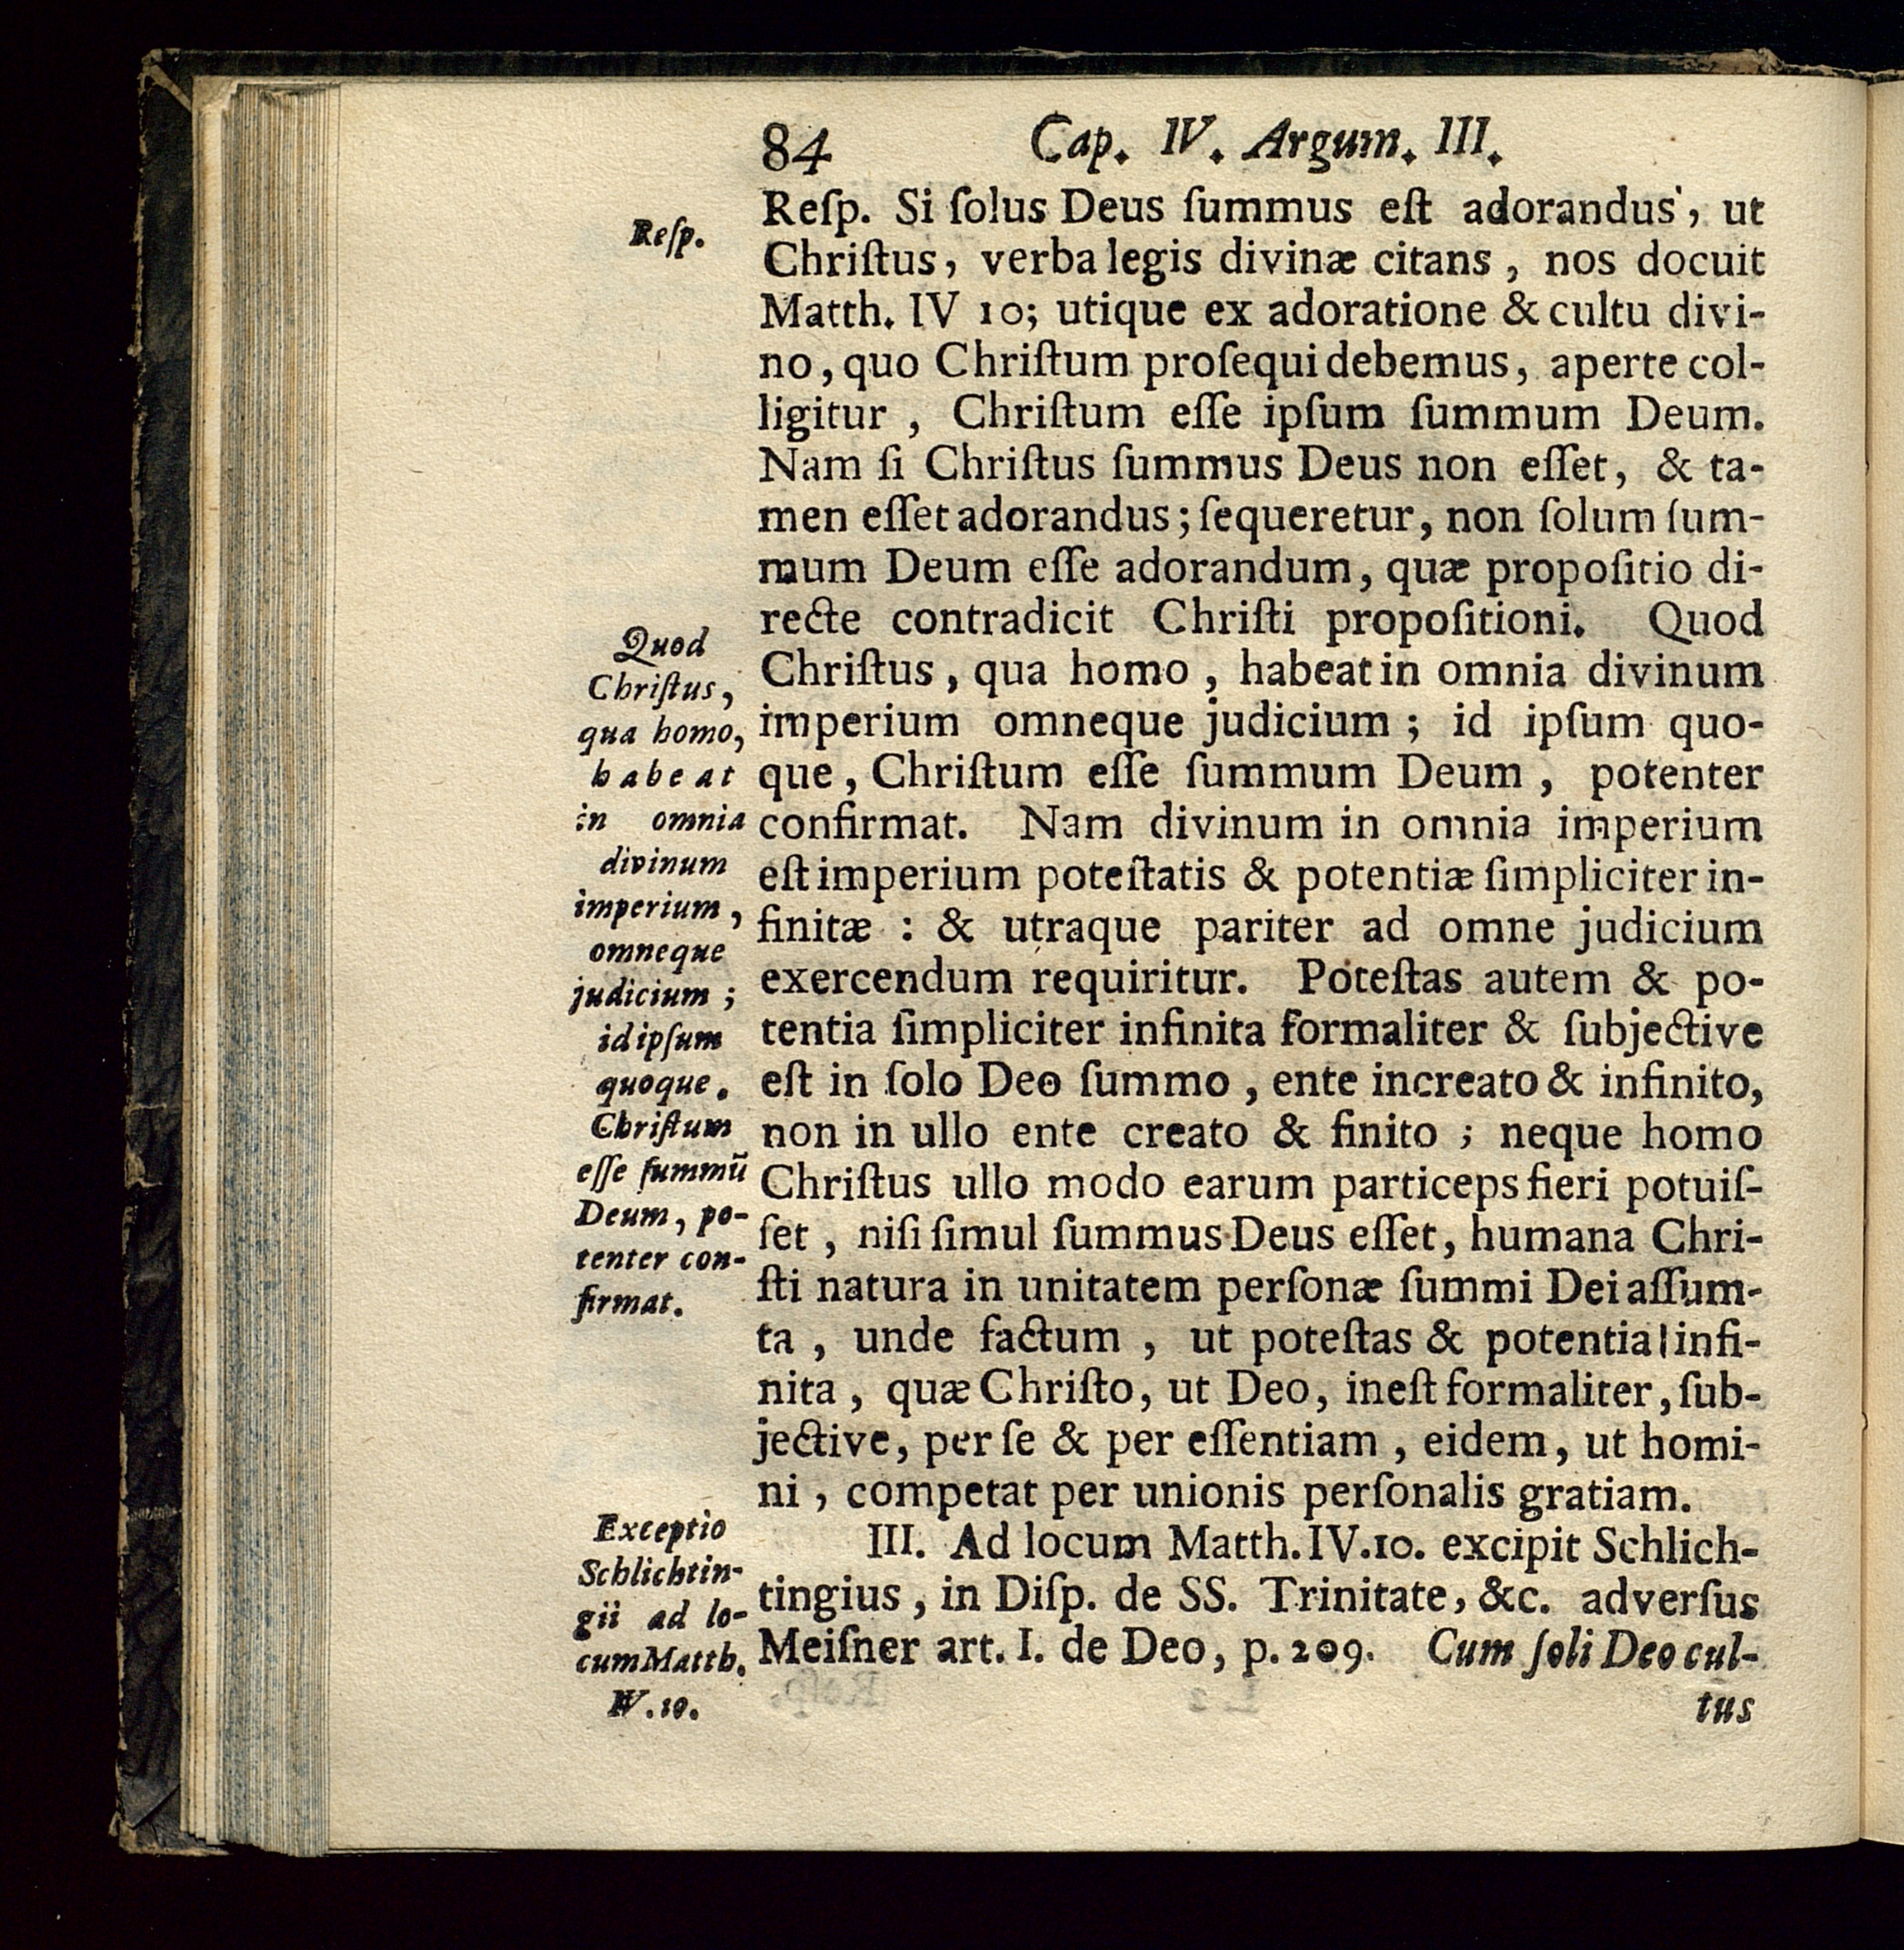 84 Cap. IV. Argum. III.
Reſp.
Reſp. Si ſolus Deus ſummus eſt adorandus, ut
Chriſtus, verba legis divinæ citans, nos docuit
Matth. IV 10; utique ex adoratione & cultu divi-
no, quo Chriſtum proſequi debemus, aperte col-
ligitur, Chriſtum eſſe ipſum ſummum Deum.
Nam ſi Chriſtus ſummus Deus non eſſet, & ta-
men eſſet adorandus; ſequeretur, non ſolum ſum-
mum Deum eſſe adorandum, quæ propoſitio di-
recte contradicit Chriſti propoſitioni. Quod
Chriſtus, qua homo, habeat in omnia divinum
imperium omneque judicium; id ipſum quo-
que, Chriſtum eſſe ſummum Deum, potenter
confirmat. Nam divinum in omnia imperium
eſt imperium poteſtatis & potentiæ ſimpliciter in-
finitæ: & utraque pariter ad omne judicium
exercendum requiritur. Poteſtas autem & po-
tentia ſimpliciter infinita formaliter & ſubjective
eſt in ſolo Deo ſummo, ente increato & infinito,
non in ullo ente creato & finito; neque homo
Chriſtus ullo modo earum particeps fieri potuiſ-
ſet, niſi ſimul ſummus Deus eſſet, humana Chri-
ſti natura in unitatem perſonæ ſummi Dei aſſum-
ta, unde factum, ut poteſtas & potentia infi-
nita, quæ Chriſto, ut Deo, ineſt formaliter, ſub-
jective, per ſe & per eſſentiam, eidem, ut homi-
ni, competat per unionis perſonalis gratiam.
III. Ad locum Matth. IV. 10. excipit Schlich-
tingius, in Diſp. de SS. Trinitate, &c. adverſus
Meiſner art. I. de Deo, p. 209. Cum ſoli Deo cul-
tus
Quod
Chriſtus,
qua homo,
habeat
in omnia
divinum
imperium,
omneque
judicium;
id ipſum
quoque.
Chriſtum
eſſe ſummũ
Deum, po-
tenter con-
firmat.
Exceptio
Schlichtin-
gii ad lo-
cum Matth.
IV. 10.